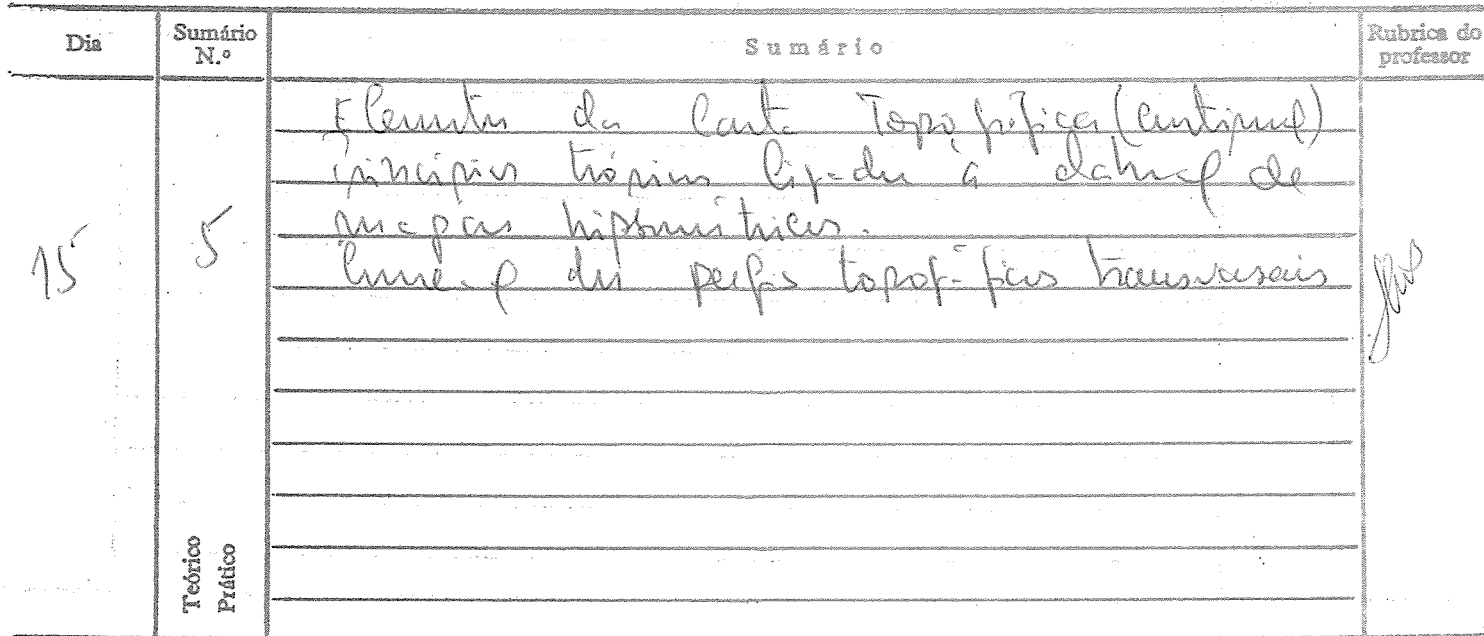 Dia
Sumário N.º
Sumário
Rubrica do professor
15
5
Elementos da Carta Topográfica (continuação)
princípios teóricos ligados à de
mapas hipsométricos.
dos perfis topográficos transversais
Teórico
Prático